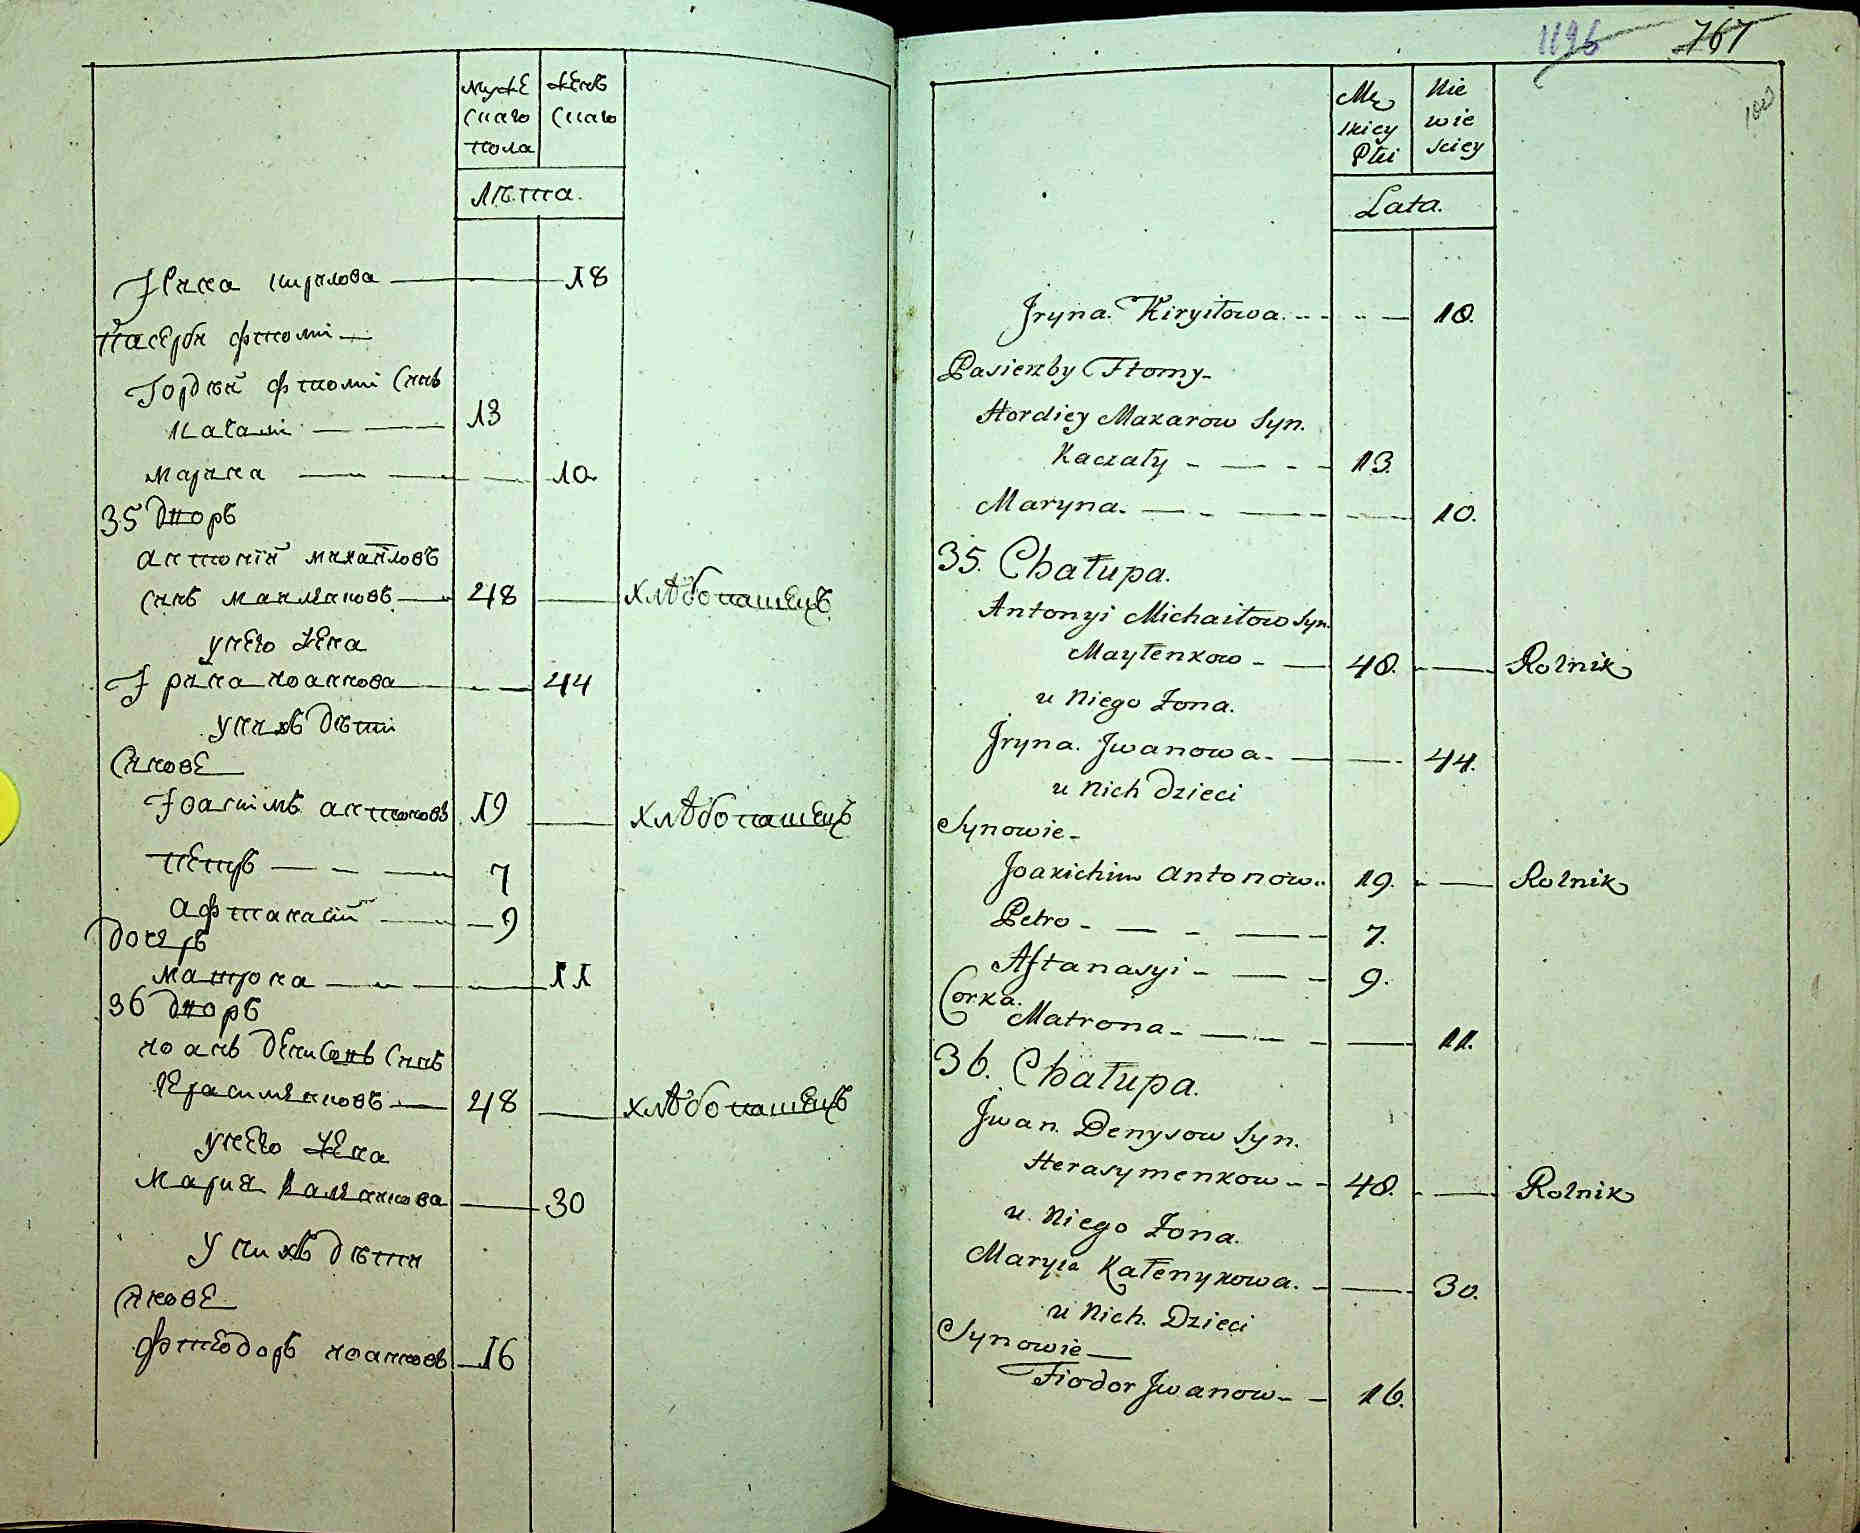 мужеского пола
женского
лѣта.
Ірина кирилова 18
Пасерби фтомы
Гордѣй фтомы Синъ
Качалы 13
Марина 10
35 Дворъ
антоній михайловъ
Синъ Майленковъ 48 хлѣбопашецъ
У него жена
Ірина иоаннова 44
У нихъ дѣти
Синовѣ
Іоакимъ антоновъ 19 хлѣбопашецъ
петръ 7
афтанасій 9
Дочеръ
матрона 11
36 Дворъ
иоанъ денисовъ Синъ
Герасименковъ 48 хлѣбопашецъ
У него жена
Мария Каленикова 30
У нихъ дѣти
Синовѣ
Фтеодоръ иоанновъ 16
1196 767
100
Męskiey Płci
Niewiesciey
Lata.
Jryna. Kiryiłowa. 18.
Pasierzby Ftomy
Hordiey Makarow Syn.
Kaczały 13.
Maryna. 10.
35. Chałupa.
Antonyi Michaiłow Syn.
Mayłenkow 48. Rolnik
u Niego Żona.
Jryna. Jwanowa. 44.
u Nich Dzieci
Synowie
Joakichim Antonow 19. Rolnik
Petro 7.
Aftanasyi 9.
Corka.
Matrona 11.
36. Chałupa.
Jwan. Denysow Syn.
Herasymenkow 48. Rolnik
u. Niego Żona.
Maryia Kałenykowa. 30.
u Nich. Dzieci
Synowie
Fiodor Jwanow 16.